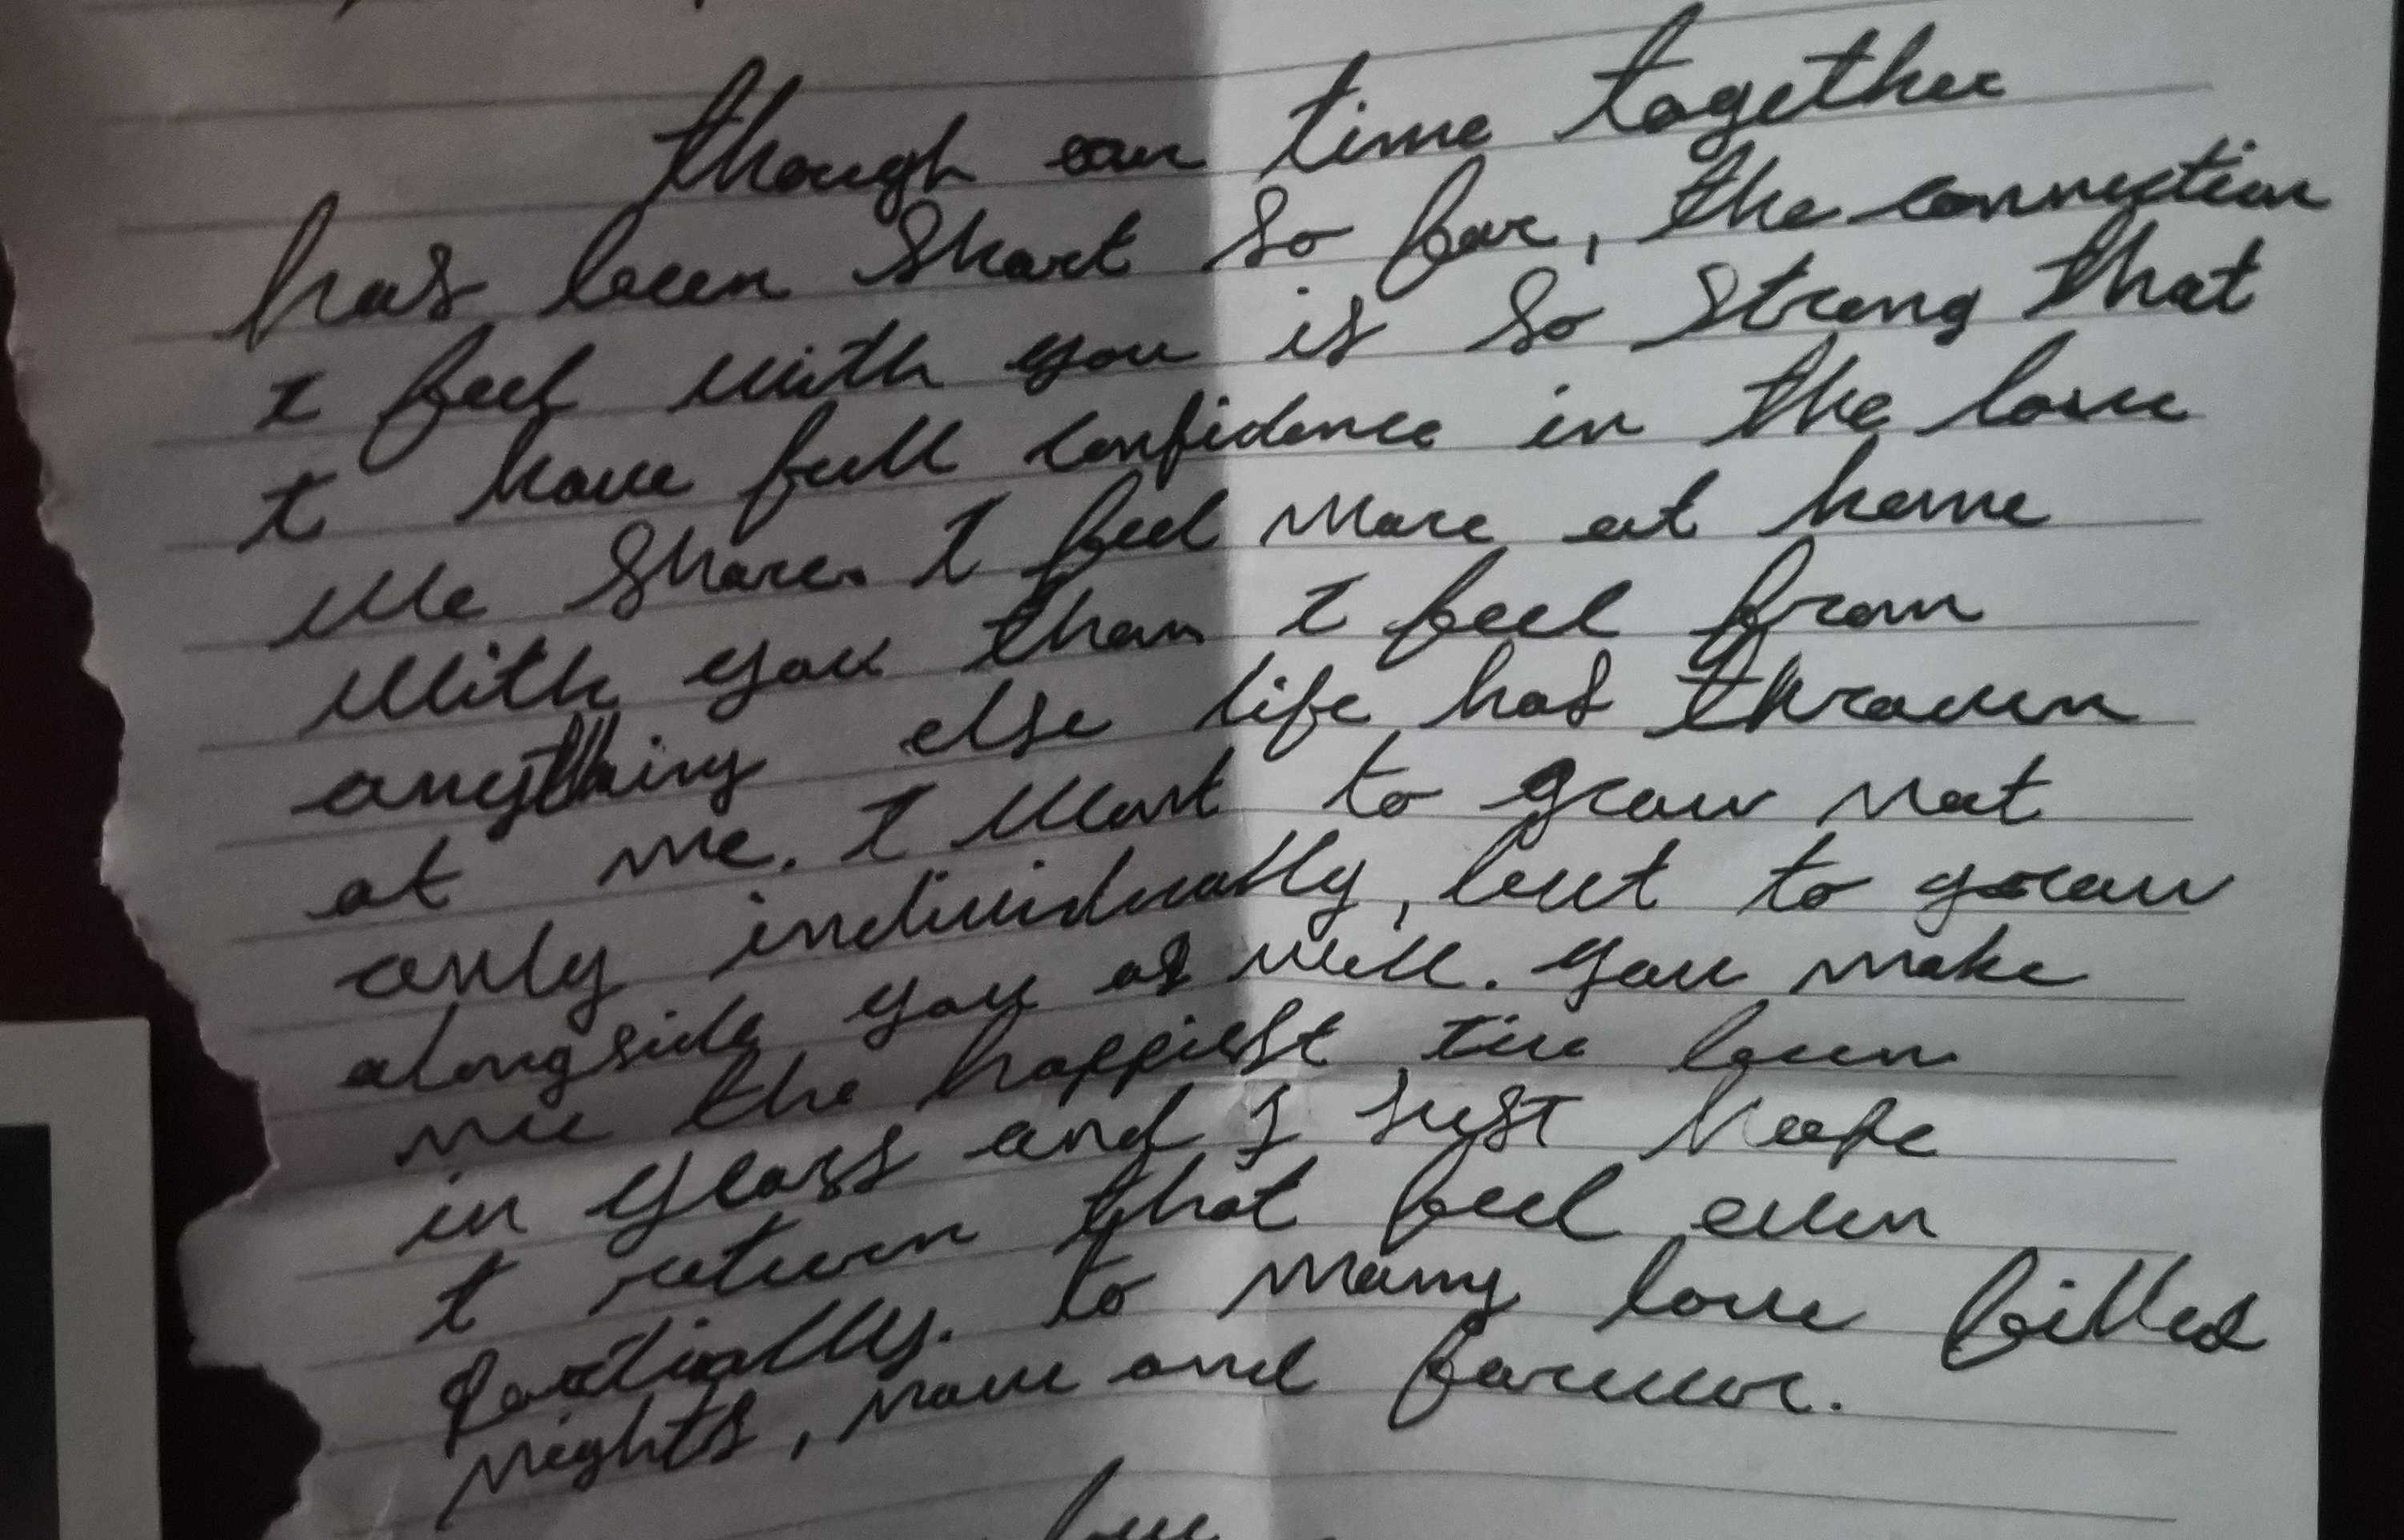 though our time together
has been short so far, the connection
I feel with you is so strong that
I have full confidence in the love
We share. I feel more at home
With you than I feel from
anything else life has thrown
at me. I want to grow not
only individually, but to grow
alongside you as well. You make
me the happiest I've been
in years and I just hope
I return that feel even
partially. to many love filled
nights, now and forever.